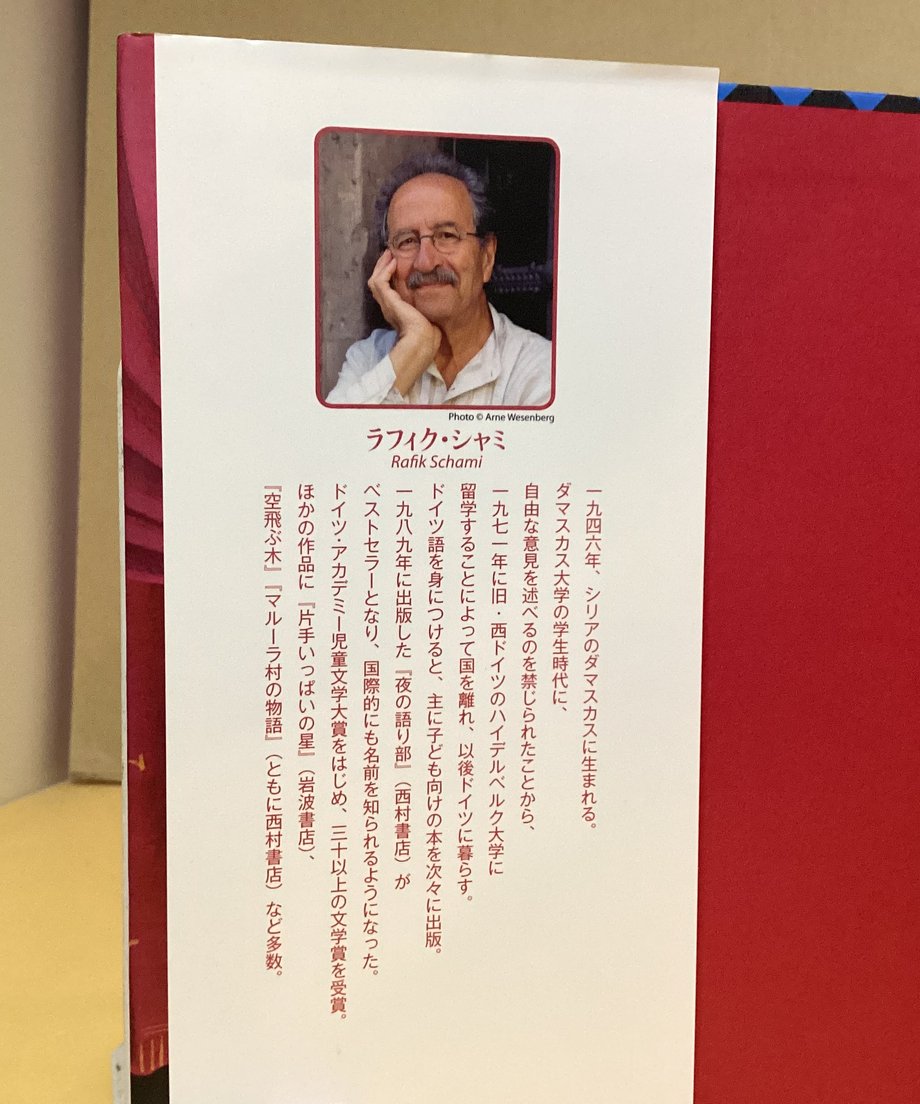 Photo © Arne Wesenberg
ラフィク・シャミ
Rafik Schami
一九四六年、シリアのダマスカスに生まれる。
ダマスカス大学の学生時代に、
自由な意見を述べるのを禁じられたことから、
一九七一年に旧・西ドイツのハイデルベルク大学に
留学することによって国を離れ、以後ドイツに暮らす。
ドイツ語を身につけると、主に子ども向けの本を次々に出版。
一九八九年に出版した『夜の語り部』（西村書店）が
ベストセラーとなり、国際的にも名前を知られるようになった。
ドイツ・アカデミー児童文学大賞をはじめ、三十以上の文学賞を受賞。
ほかの作品に『片手いっぱいの星』（岩波書店）、
『空飛ぶ木』『マルーラ村の物語』（ともに西村書店）など多数。